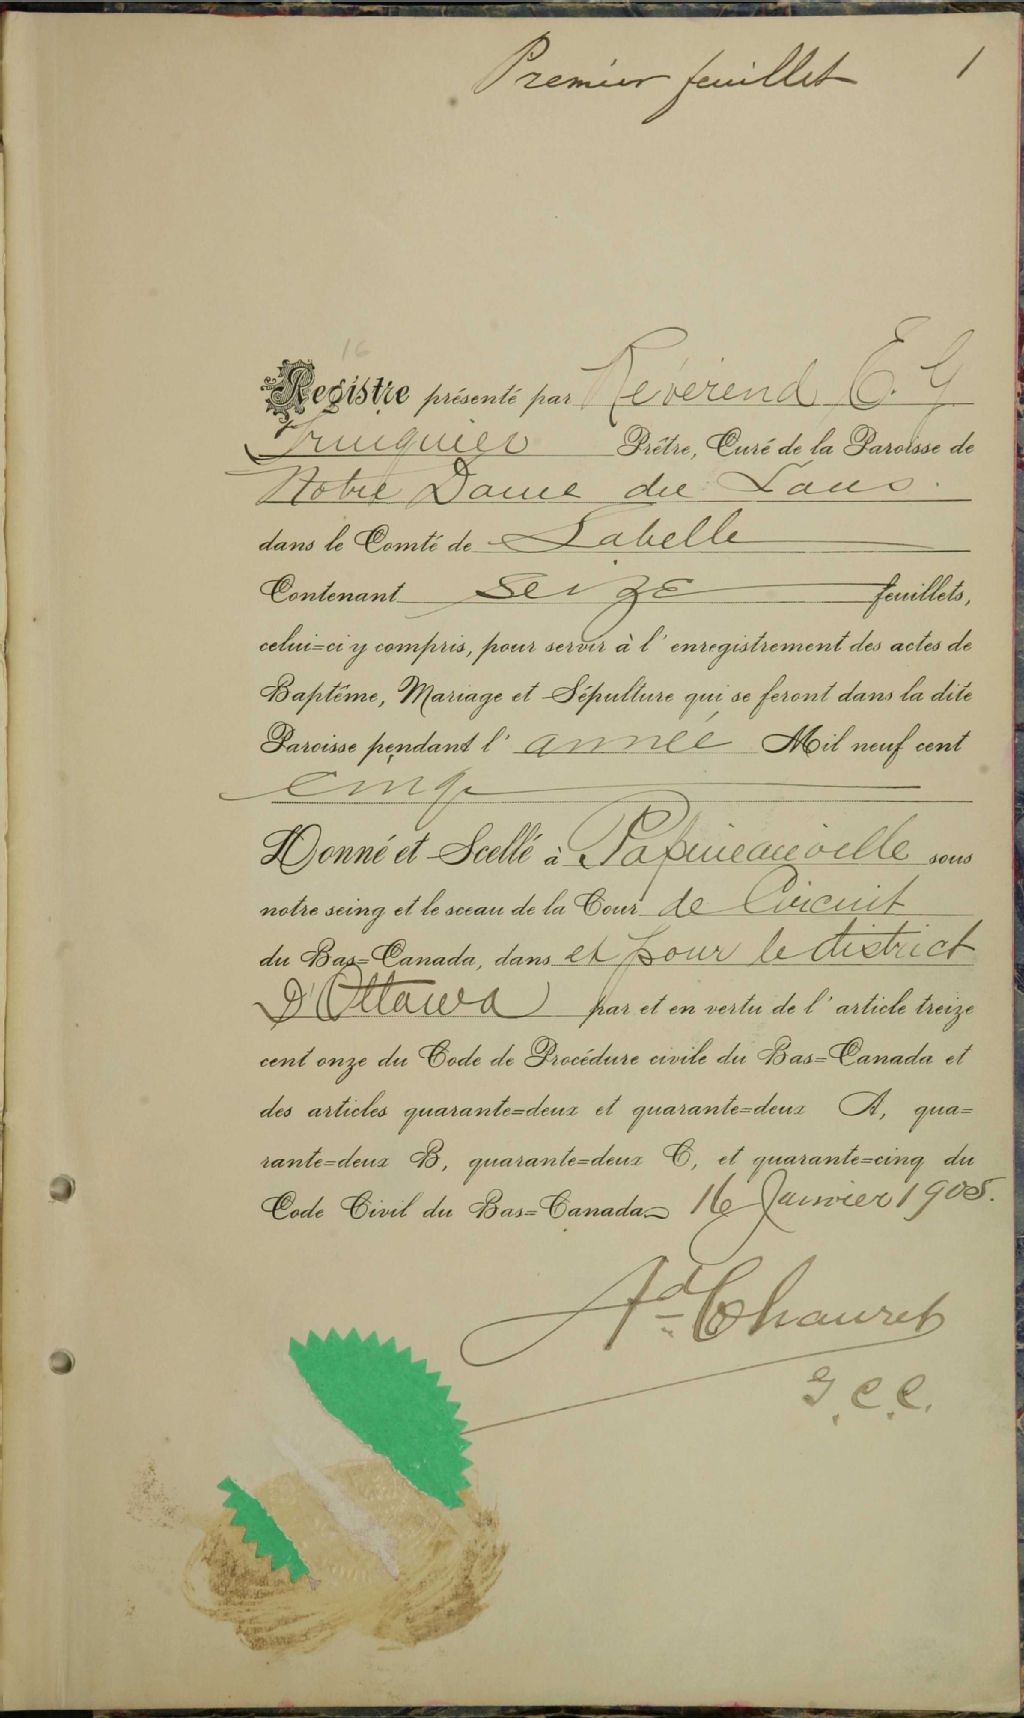 Premier feuillet 1
16
Registre présenté par Révérend E. G.
Prêtre, Curé de la Paroisse de
Notre Dame du Laus.
dans le Comté de Labelle
Contenant seize feuillets,
celui=ci y compris, pour servir à l'enregistrement des actes de
Baptême, Mariage et Sépulture qui se feront dans la dite
Paroisse pendant l'année Mil neuf cent
cinq
Donné et Scellé à Papineauville sous
notre seing et le sceau de la Cour de Circuit
du Bas=Canada, dans et pour le district
D'Ottawa par et en vertu de l'article treize
cent onze du Code de Procédure civile du Bas=Canada et
des articles quarante=deux et quarante=deux A, qua=
rante=deux B, quarante=deux C, et quarante=cinq du
Code Civil du Bas=Canada 16 Janvier 1905.
Ad Chauret
G.C.C.